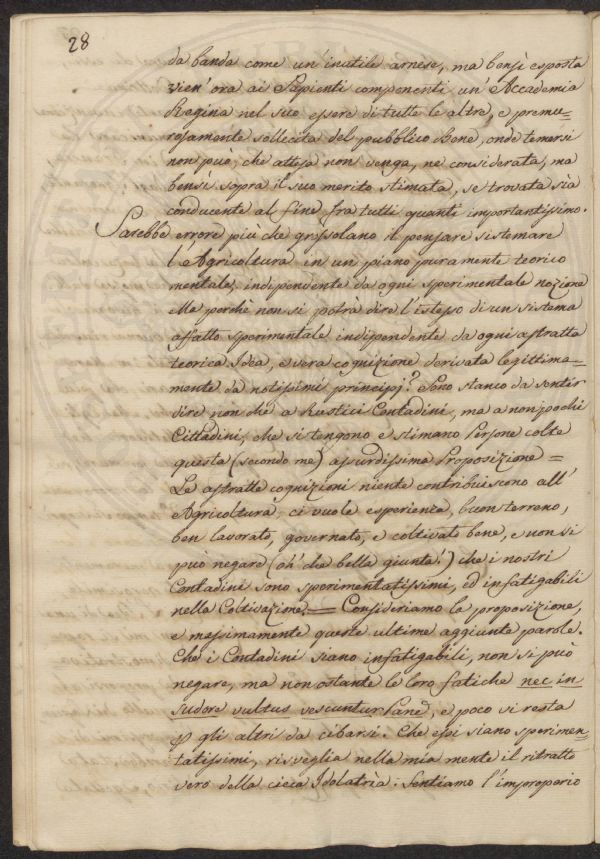 28
da banda come un' inutile arnese, ma bensì esposta
vien' ora ai Sapienti componenti un' Accademia
Regina nel suo essere di tutte le altre, e premu-
rosamente sollecita del pubblico Bene, onde temersi
non può, che attesa non venga, ne considerata, ma
bensì sopra il suo merito stimata, se trovata sia
conducente al fine fra tutti quanti importantissimo.
Sarebbe errore più che grossolano il pensare sistemare
l'Agricoltura in un piano puramente teorico
mentale, independente da ogni sperimentale nozione
Ma perchè non si potrà dire l'istesso di un sistema
affatto sperimentale independente da ogni astratta
teorica Idea, e vera cognizione derivata legittima-
mente da notissimi principj? Sono stanco da sentir
dire non che a Rustici Contadini, ma a non pochi
Cittadini, che si tengono e stimano Persone colte
questa (secondo me) assurdissima Proposizione =
Le astratte cognizioni niente contribuiscono all'
Agricoltura, ci vuole esperienza, buon terreno,
ben lavorato, governato, e coltivato bene, e non si
può negare (oh' che bella giunta!) che i nostri
Contadini sono sperimentatissimi, ed infatigabili
nella Coltivazione = Consideriamo la proposizione,
e massimamente queste ultime aggiunte parole.
Che i Contadini siano infatigabili, non si può
negare, ma non ostante le loro fatiche nec in
sudore vultus vescuntur Pane, e poco si resta
gli altri da cibarsi. Che essi siano sperimen-
tatissimi, risveglia nella mia mente il ritratto
vero della cieca Idolatria. Sentiamo l'improperio